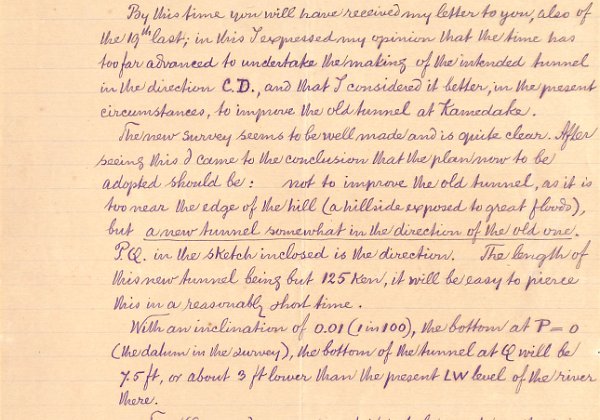 By this time you will have received my letter to you, also of
the 19th last; in this I expressed my opinion that the time has
too far advanced to undertake the making of the intended tunnel
in the direction C.D., and that I considered it better, in the present
circumstances, to improve the old tunnel at Kamedake.
The new survey seems to be well made and is quite clear. After
seeing this I came to the conclusion that the plan now to be
adopted should be: not to improve the old tunnel, as it is
too near the edge of the hill (a hillside exposed to great floods),
but a new tunnel somewhat in the direction of the old one.
P.Q. in the sketch inclosed is the direction. The length of
this new tunnel being but 125 Ken, it will be easy to pierce
this in a reasonably short time.
With an inclination of 0.01 (1 in 100), the bottom at P = 0
(the datum in the survey), the bottom of the tunnel at Q will be
7.5 ft, or about 3 ft lower than the present LW level of the river
there.